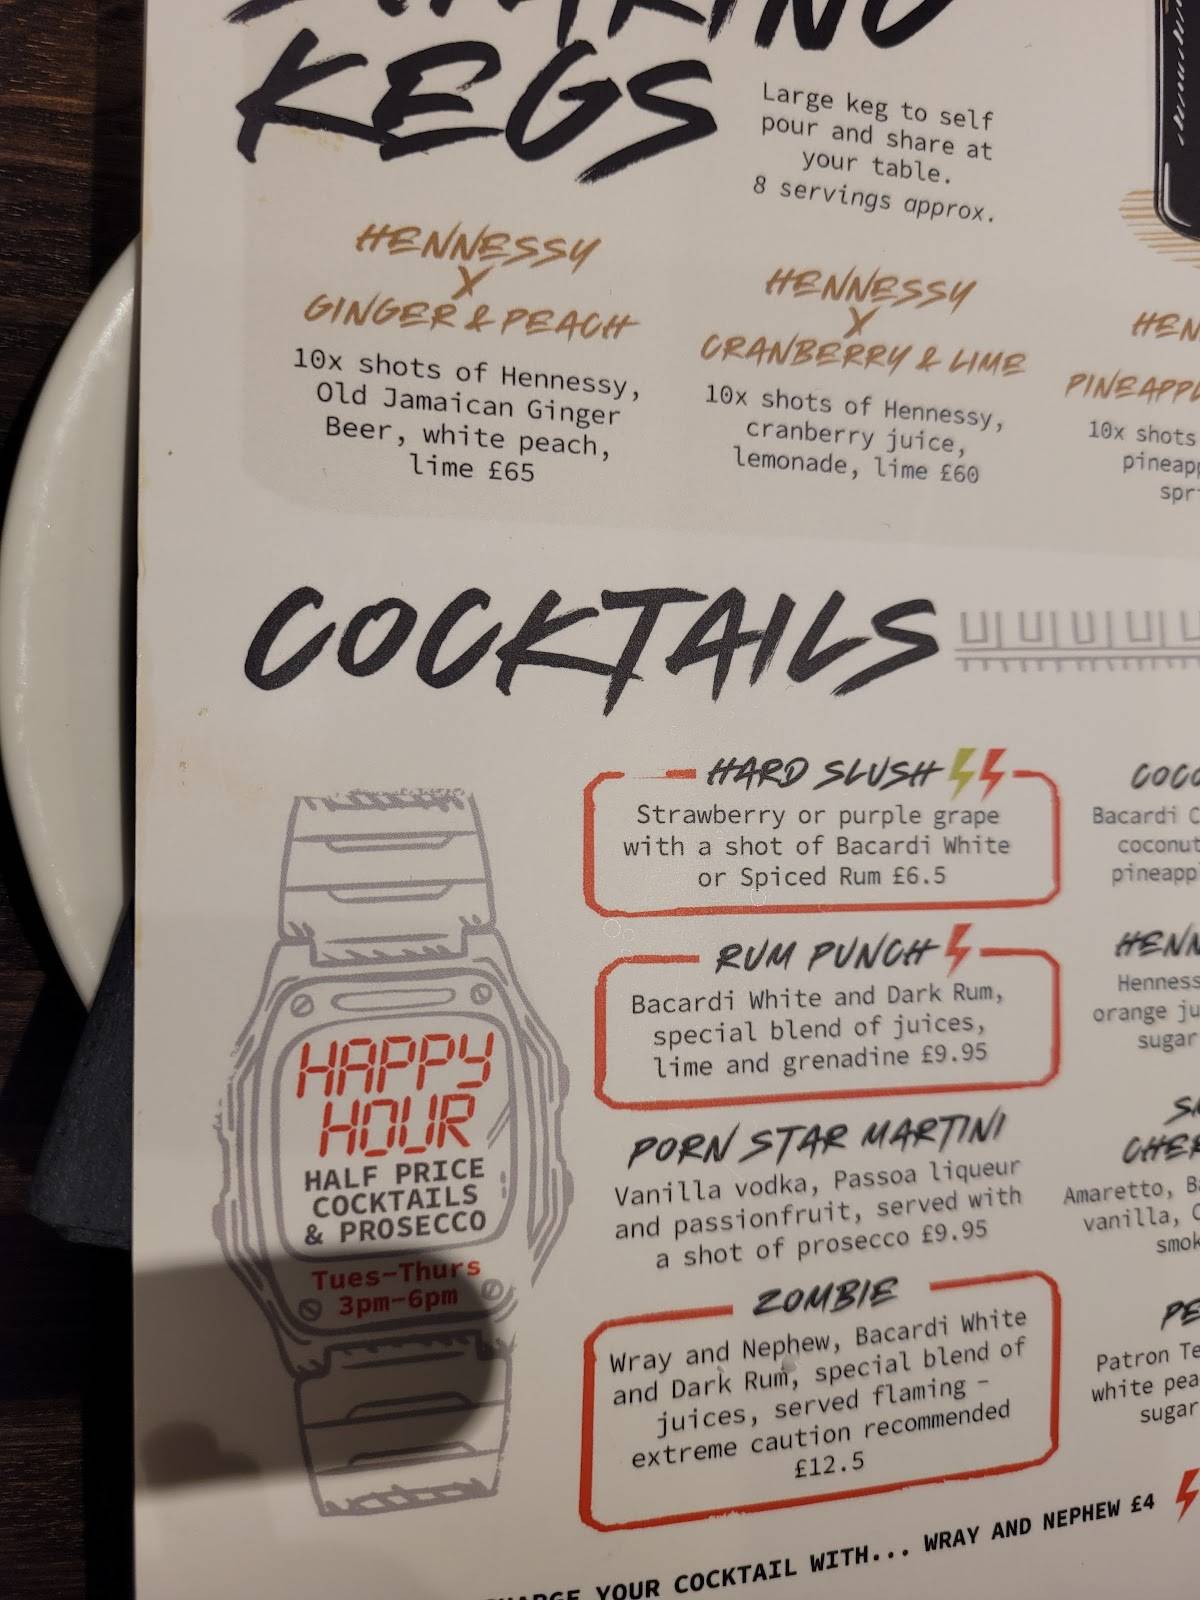 KEGS
Large keg to self
pour and share at
your table.
8 servings approx.
HENNESSY
X
GINGER & PEACH
10x shots of Hennessy,
Old Jamaican Ginger
Beer, white peach,
lime £65
HENNESSY
X
CRANBERRY & LIME
10x shots of Hennessy,
cranberry juice,
lemonade, lime £60
10x shots
COCKTAILS
HAPPY
HOUR
HALF PRICE
COCKTAILS
& PROSECCO
Tues-Thurs
3pm-6pm
HARD SLUSH
Strawberry or purple grape
with a shot of Bacardi White
or Spiced Rum £6.5
RUM PUNCH
Bacardi White and Dark Rum,
special blend of juices,
lime and grenadine £9.95
PORN STAR MARTINI
Vanilla vodka, Passoa liqueur
and passionfruit, served with
a shot of prosecco £9.95
ZOMBIE
Wray and Nephew, Bacardi White
and Dark Rum, special blend of
juices, served flaming –
extreme caution recommended
£12.5
Bacardi
coconut
orange
sugar
Amaretto,
vanilla,
Patron
white
sugar
YOUR COCKTAIL WITH... WRAY AND NEPHEW £4